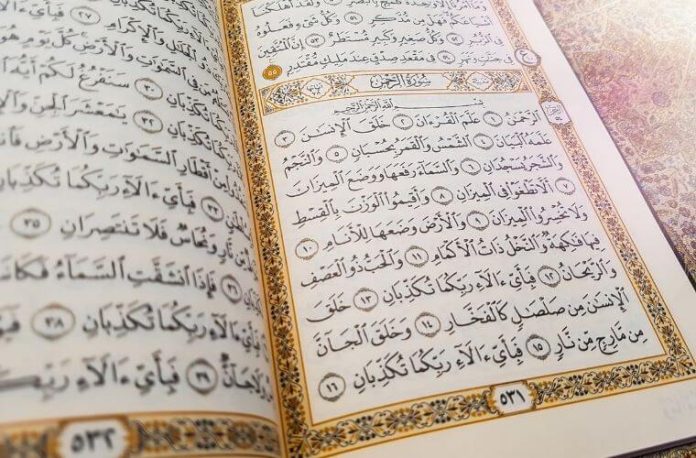 وَمَآ أَمْرُنَآ إِلَّا وَٰحِدَةٌ كَلَمْحٍۭ بِٱلْبَصَرِ ۝٥٠ وَلَقَدْ أَهْلَكْنَآ
أَشْيَاعَكُمْ فَهَلْ مِن مُّدَّكِرٍ ۝٥١ وَكُلُّ شَىْءٍ فَعَلُوهُ
فِى ٱلزُّبُرِ ۝٥٢ وَكُلُّ صَغِيرٍ وَكَبِيرٍ مُّسْتَطَرٌ ۝٥٣ إِنَّ ٱلْمُتَّقِينَ
فِى جَنَّٰتٍ وَنَهَرٍ ۝٥٤ فِى مَقْعَدِ صِدْقٍ عِندَ مَلِيكٍ مُّقْتَدِرٍۭ ۝٥٥
سُورَةُ الرَّحْمَٰن
بِسْمِ ٱللَّهِ ٱلرَّحْمَٰنِ ٱلرَّحِيمِ
ٱلرَّحْمَٰنُ ۝١ عَلَّمَ ٱلْقُرْءَانَ ۝٢ خَلَقَ ٱلْإِنسَٰنَ ۝٣
عَلَّمَهُ ٱلْبَيَانَ ۝٤ ٱلشَّمْسُ وَٱلْقَمَرُ بِحُسْبَانٍ ۝٥ وَٱلنَّجْمُ
وَٱلشَّجَرُ يَسْجُدَانِ ۝٦ وَٱلسَّمَآءَ رَفَعَهَا وَوَضَعَ ٱلْمِيزَانَ
۝٧ أَلَّا تَطْغَوْا۟ فِى ٱلْمِيزَانِ ۝٨ وَأَقِيمُوا۟ ٱلْوَزْنَ بِٱلْقِسْطِ
وَلَا تُخْسِرُوا۟ ٱلْمِيزَانَ ۝٩ وَٱلْأَرْضَ وَضَعَهَا لِلْأَنَامِ ۝١٠
فِيهَا فَٰكِهَةٌ وَٱلنَّخْلُ ذَاتُ ٱلْأَكْمَامِ ۝١١ وَٱلْحَبُّ ذُو ٱلْعَصْفِ
وَٱلرَّيْحَانُ ۝١٢ فَبِأَىِّ ءَالَآءِ رَبِّكُمَا تُكَذِّبَانِ ۝١٣ خَلَقَ
ٱلْإِنسَٰنَ مِن صَلْصَٰلٍ كَٱلْفَخَّارِ ۝١٤ وَخَلَقَ ٱلْجَآنَّ
مِن مَّارِجٍ مِّن نَّارٍ ۝١٥ فَبِأَىِّ ءَالَآءِ رَبِّكُمَا تُكَذِّبَانِ ۝١٦
٥٣١
۝٢٧ فَبِأَىِّ
ٱلْجَلَٰلِ وَٱلْإِكْرَامِ
مَن فِى ٱلسَّمَٰوَٰتِ وَٱلْأَرْضِ كُلَّ يَوْمٍ هُوَ
۝٣٠ سَنَفْرُغُ لَكُمْ أَيُّهَ
تُكَذِّبَانِ ۝٣٢ يَٰمَعْشَرَ ٱلْجِنِّ
مِنْ أَقْطَارِ ٱلسَّمَٰوَٰتِ وَٱلْأَرْضِ
فَبِأَىِّ ءَالَآءِ رَبِّكُمَا تُكَذِّبَانِ
مِّن نَّارٍ وَنُحَاسٌ فَلَا تَنتَصِرَانِ ۝٣٥
۝٣٦ فَإِذَا ٱنشَقَّتِ ٱلسَّمَآءُ فَكَانَتْ
فَبِأَىِّ ءَالَآءِ رَبِّكُمَا تُكَذِّبَانِ ۝٣٨
وَلَا جَآنٌّ ۝٣٩ فَبِأَىِّ ءَالَآءِ
٥٣٢